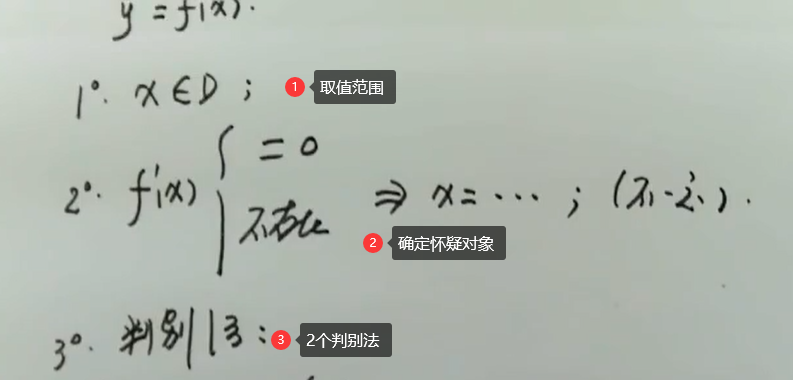 y = f(x).
1°. x ∈ D ; 1 取值范围
2°. f'(x) { = 0
不存在 ⇒ x = ··· ; (不一定).
2 确定怀疑对象
3°. 判别 : 3 2个判别法